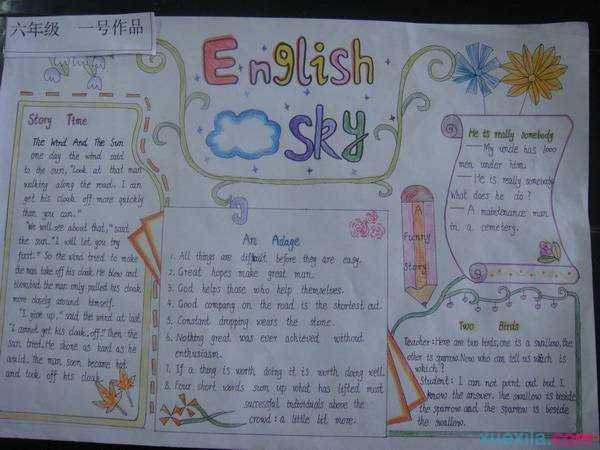 六年级 一号作品
English
Sky
Story Time
The Wind And The Sun
one day the wind said
to the sun, "Look at that man
walking along the road. I can
get his cloak off more quickly
than you can."
"We will see about that," said
the sun. "I will let you try
first." So the wind tried to make
the man take off his cloak. He blew and
blew, but the man only pulled his cloak
more closely around himself.
"I give up," said the wind at last
"I cannot get his cloak off." Then the
sun tried. He shone as hard as he
could. The man soon became hot
and took off his cloak.
An Adage
1. All things are difficult before they are easy.
2. Great hopes make great man.
3. God helps those who help themselves.
4. Good company on the road is the shortest cut.
5. Constant dropping wears the stone.
6. Nothing great was ever achieved without
enthusiasm.
7. If a thing is worth doing it is worth doing well.
8. Four short words sum up what has lifted most
successful individuals above the
crowd: a little bit more.
A
Funny
Story
He is really somebody
— My uncle has 1000
men under him.
— He is really somebody
What does he do?
— A maintenance man
in a cemetery.
Two Birds
Teacher: Here are two birds, one is a swallow, the
other is sparrow. Now who can tell us which is
which?
Student: I can not point out but I
know the answer. The swallow is beside
the sparrow and the sparrow is beside
the swallow.
xuexila.com